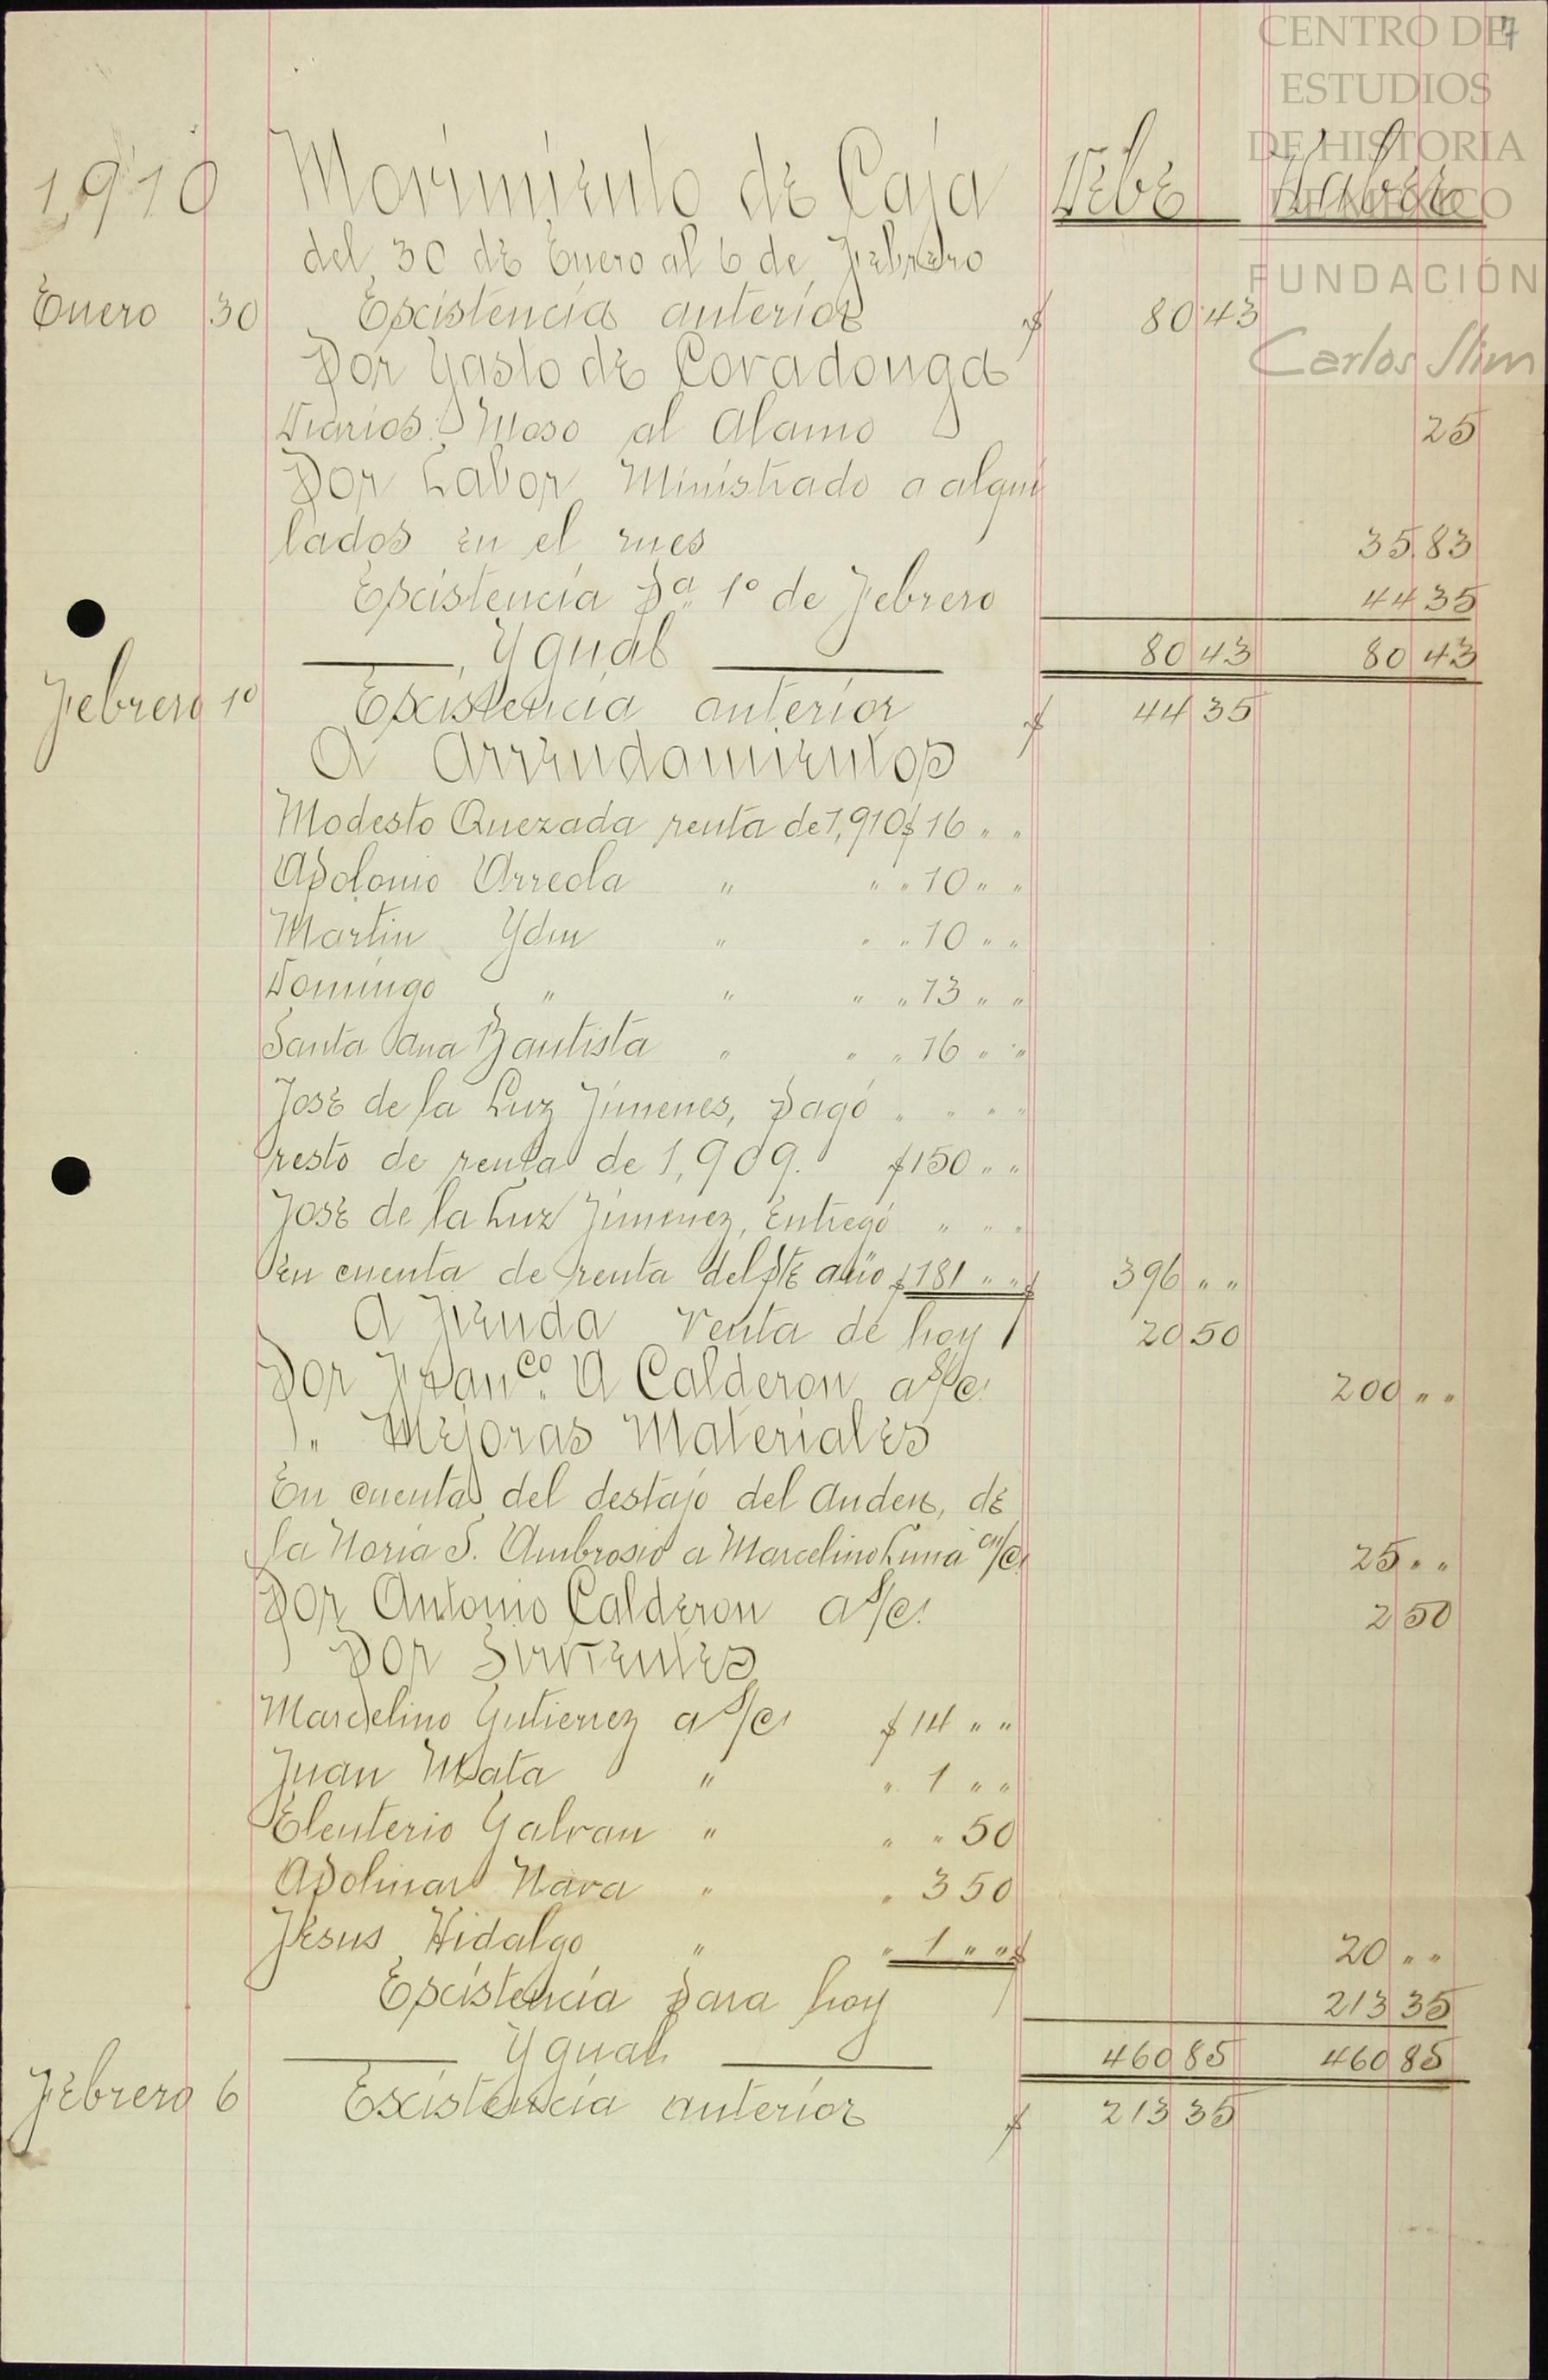 CENTRO DE
ESTUDIOS
DE HISTORIA
DE MÉXICO
FUNDACIÓN
Carlos Slim
7
1910 Movimiento de Caja Debe Haber
del 30 de Enero al 6 de Febrero
Enero 30 Excistencia anterior $ 80 43
Por Gasto de Covadonga
Diarios: Moso al Alamo 25
Por Labor Ministrado a alqui
lados en el mes 35 83
Excistencia Pa. 1º de Febrero 44 35
Ygual 80 43 80 43
Febrero 1º Excistencia anterior $ 44 35
A Arrendamientos
Modesto Quezada renta de 1,910 $ 16 " "
Apolonio Arreola " " " 10 " "
Martin Ydm " " " 10 " "
Domingo " " " " 13 " "
Santa Ana Bautista " " " 16 " "
José de la Luz Jimenes, pagó " " " "
resto de renta de 1,909. $ 150 " "
José de la Luz Jimenez, Entregó " " "
en cuenta de renta del pte año $ 181 " " $ 396 " "
A Tienda Venta de hoy 20 50
Por Franco. A Calderon a s/c. 200 " "
" Mejoras Materiales
En cuenta del destajo del Anden, de
la Noria S. Ambrosio a Marcelino Luna 25 " "
Por Antonio Calderon a s/c. 2 50
Por Sirvientes
Marcelino Gutierrez a s/c. $ 14 " "
Juan Mata " " 1 " "
Eleuterio Galvan " " " 50
Apolinar Nava " " 3 50
Jesus Hidalgo " " 1 " " $ 20 " "
Excistencia para hoy 213 35
Ygual 460 85 460 85
Febrero 6 Excistencia anterior $ 213 35